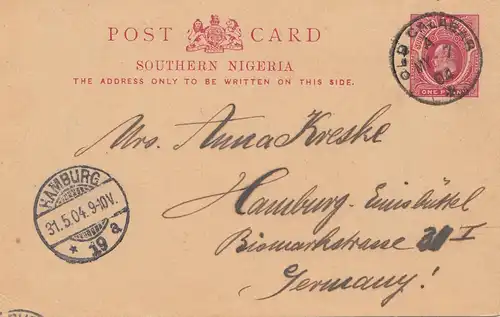 POST CARD
SOUTHERN NIGERIA
THE ADDRESS ONLY TO BE WRITTEN ON THIS SIDE.
OLD CALABAR
04
ONE PENNY
Mrs. Anna Kreske
Hamburg-Eimsbüttel
Bismarkstrasse I
Germany!
HAMBURG
31.5.04.9-10V.
* 19 a